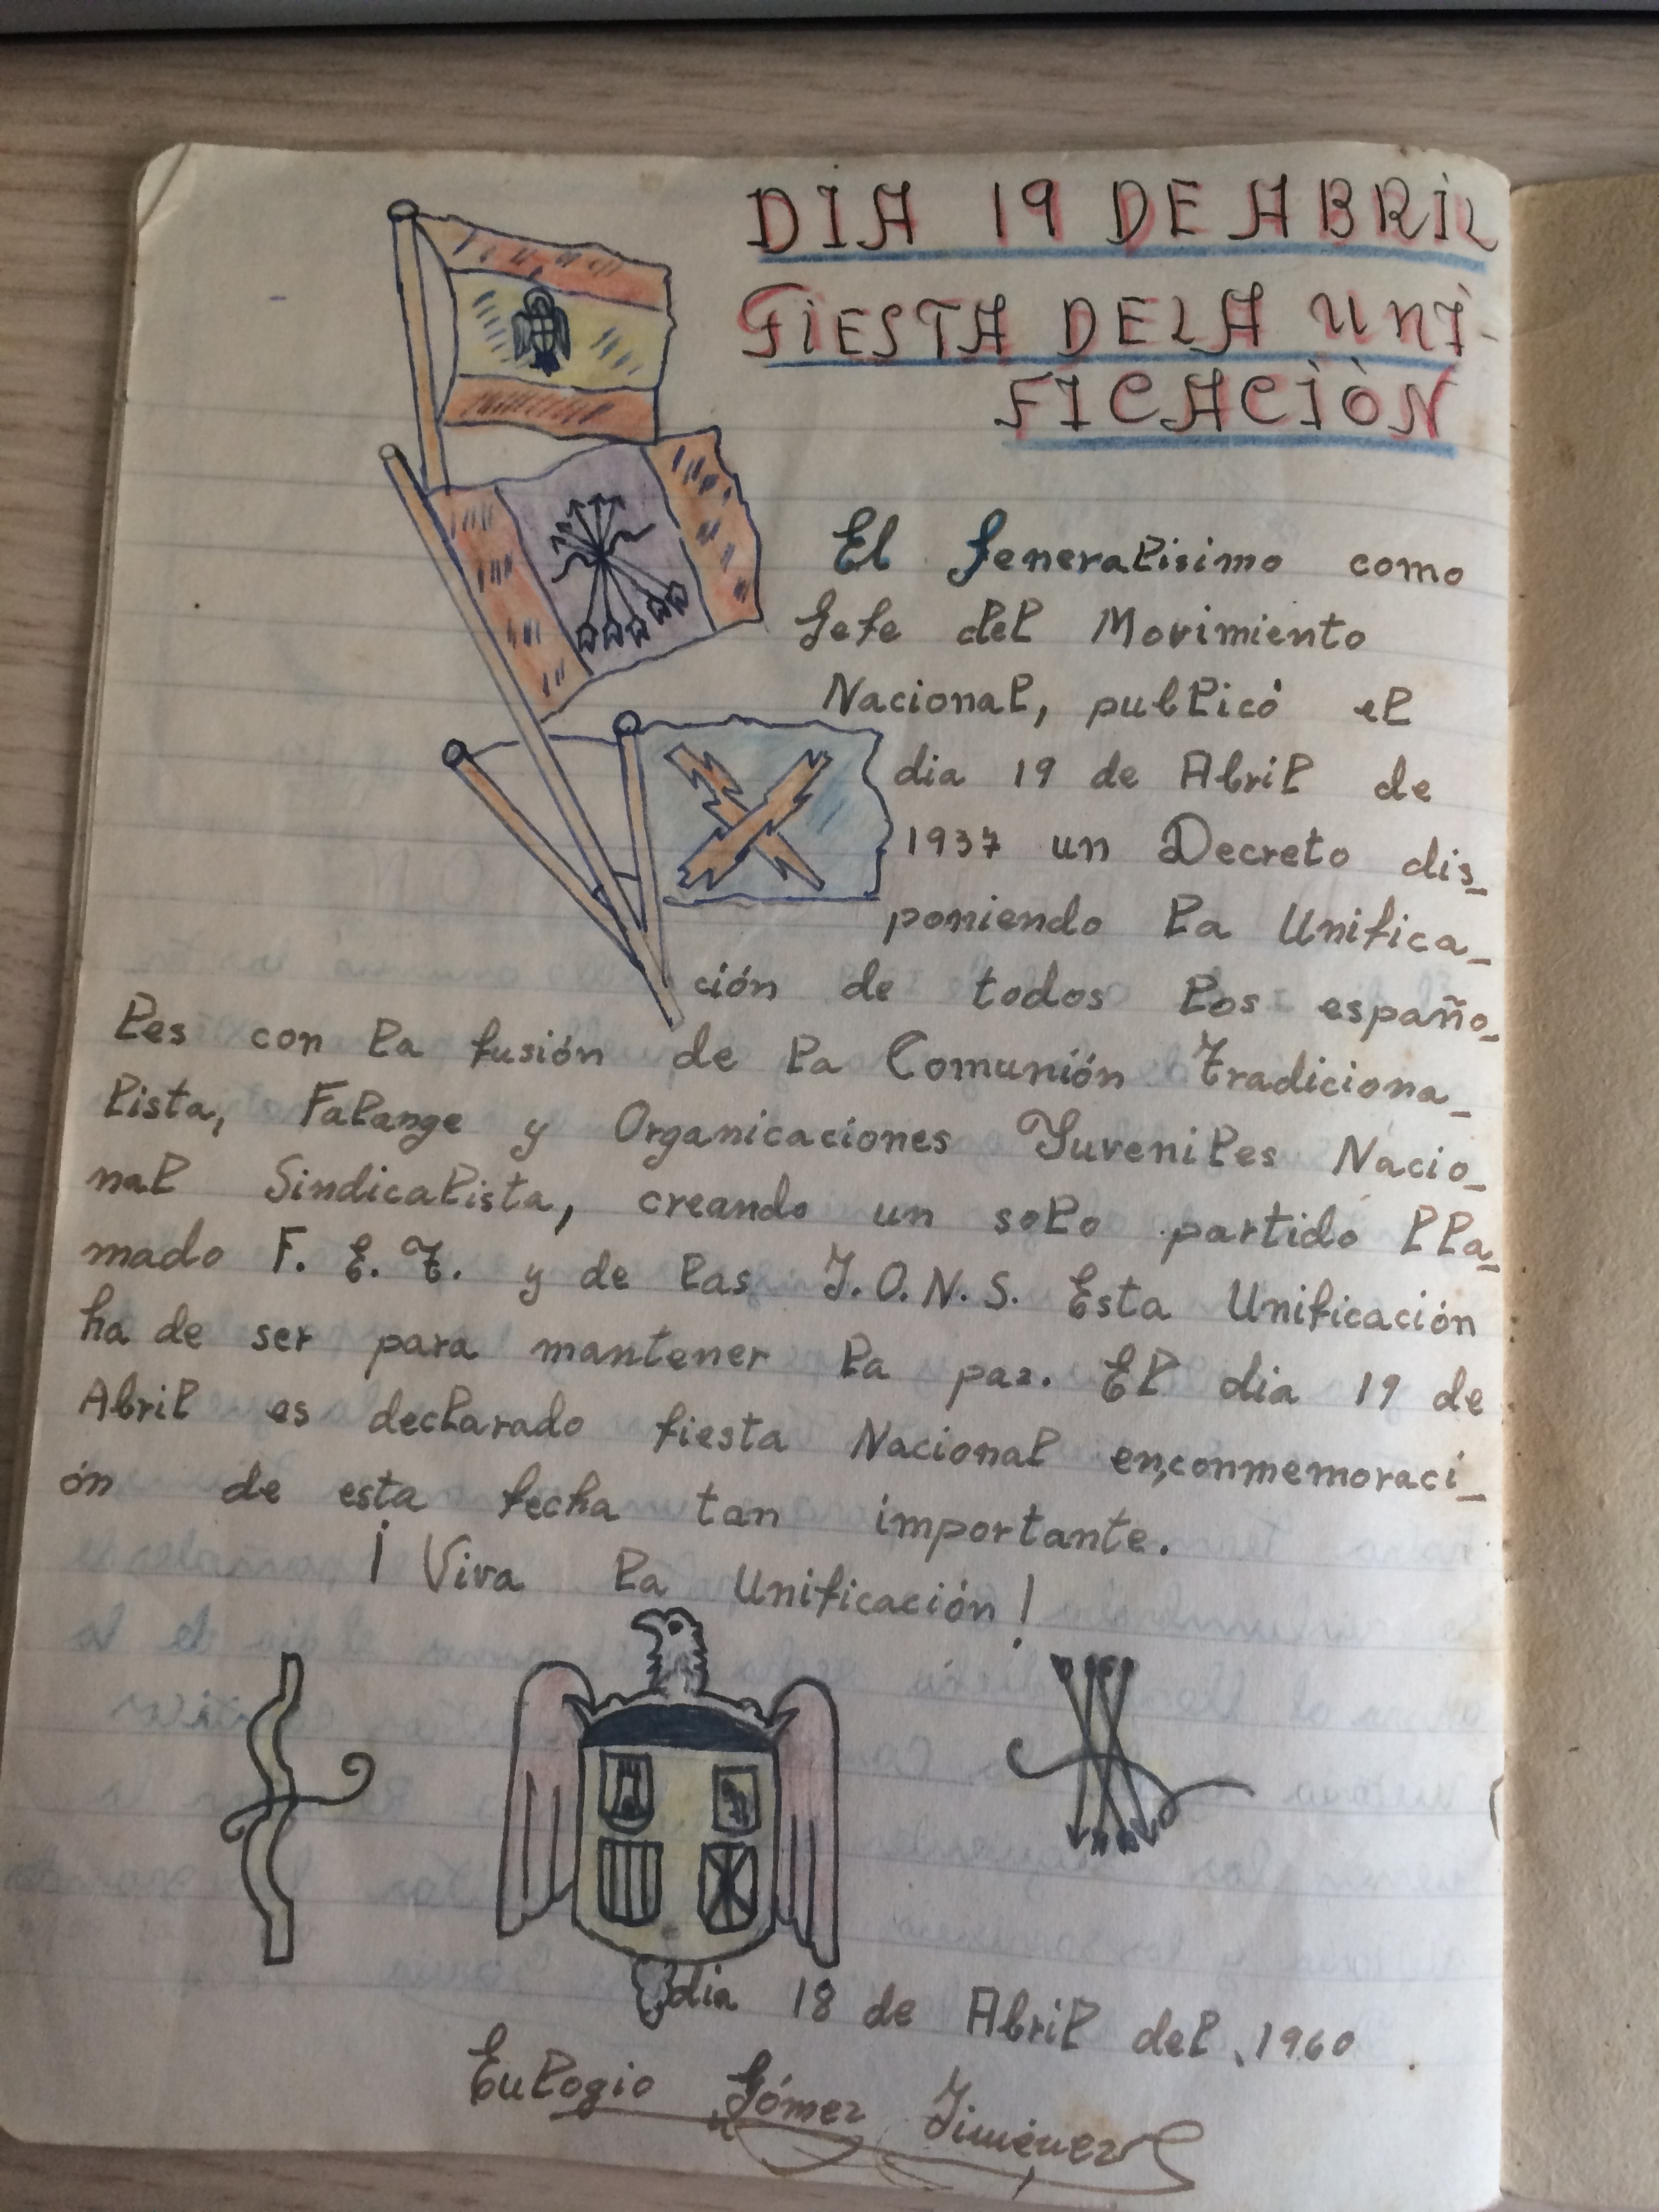 DIA 19 DE ABRIL
FIESTA DE LA UNI-
FICACIÓN
El Generalisimo como
Jefe del Movimiento
Nacional, publicó el
dia 19 de Abril de
1937 un Decreto dis_
poniendo la Unifica_
ción de todos los españo_
les con la fusión de la Comunión Tradiciona_
lista, Falange y Organicaciones Juveniles Nacio_
nal Sindicalista, creando un solo partido lla_
mado F. E. T. y de las J.O.N.S. Esta Unificación
ha de ser para mantener la paz. El dia 19 de
Abril es declarado fiesta Nacional en conmemoraci_
ón de esta fecha tan importante.
¡Viva la Unificación!
dia 18 de Abril del 1960
Eulogio Gómez Jiménez